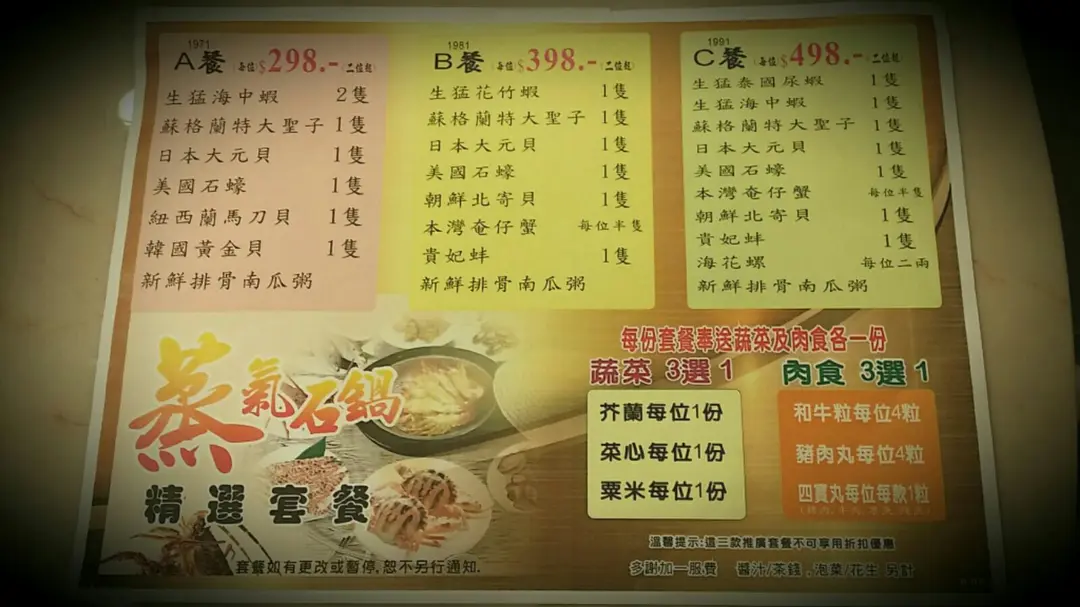 1971
A餐 (每位$298.-二位起)
生猛海中蝦 2隻
蘇格蘭特大聖子 1隻
日本大元貝 1隻
美國石蠔 1隻
紐西蘭馬刀貝 1隻
韓國黃金貝 1隻
新鮮排骨南瓜粥
1981
B餐 (每位$398.-二位起)
生猛花竹蝦 1隻
蘇格蘭特大聖子 1隻
日本大元貝 1隻
美國石蠔 1隻
朝鮮北寄貝 1隻
本灣奄仔蟹 每位半隻
貴妃蚌 1隻
新鮮排骨南瓜粥
1991
C餐 (每位$498.-二位起)
生猛泰國尿蝦 1隻
生猛海中蝦 1隻
蘇格蘭特大聖子 1隻
日本大元貝 1隻
美國石蠔 1隻
本灣奄仔蟹 每位半隻
朝鮮北寄貝 1隻
貴妃蚌 1隻
海花螺 每位二兩
新鮮排骨南瓜粥
蒸氣石鍋
精選套餐
套餐如有更改或暫停,恕不另行通知.
每份套餐奉送蔬菜及肉食各一份
蔬菜 3選1
芥蘭每位1份
菜心每位1份
粟米每位1份
肉食 3選1
和牛粒每位4粒
豬肉丸每位4粒
四寶丸每位每款1粒
溫馨提示:這三款推廣套餐不可享用折扣優惠
多謝加一服費 醬汁/茶錢.泡菜/花生 另計